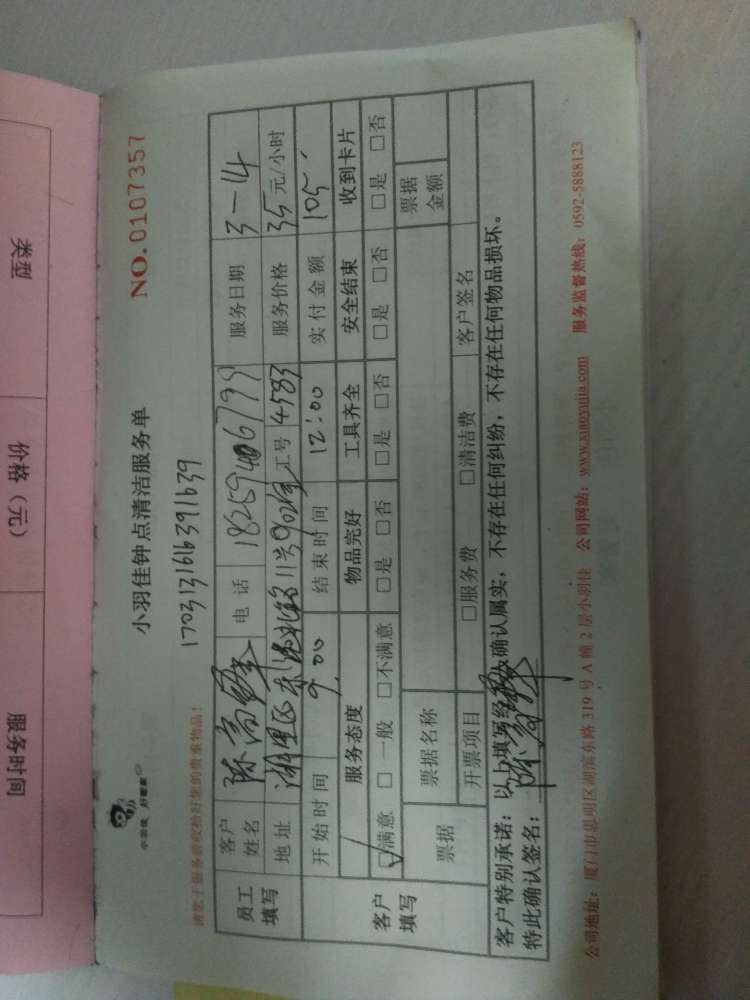 小羽佳 好管家
小羽佳钟点清洁服务单 NO.0107357
1703131616391639
请您于服务前收拾好您的贵重物品!
员工填写 客户姓名 陈高峰 电话 18259406799 服务日期 3-14
地址 湖里区 11号902室 工号 4583 服务价格 35元/小时
开始时间 9:00 结束时间 12:00 实付金额 105
客户填写 服务态度 物品完好 工具齐全 安全结束 收到卡片
☑满意 □一般 □不满意 □是 □否 □是 □否 □是 □否 □是 □否
票据 票据名称 票据金额
开票项目 □服务费 □清洁费 客户签名
客户特别承诺:以上填写经 确认属实,不存在任何纠纷,不存在任何物品损坏。
特此确认签名:陈高峰
公司地址:厦门市思明区湖滨东路319号A幢2层小羽佳 公司网站:www.xiaoyujia.com 服务监督热线:0592-5888123
类型
价格(元)
服务时间